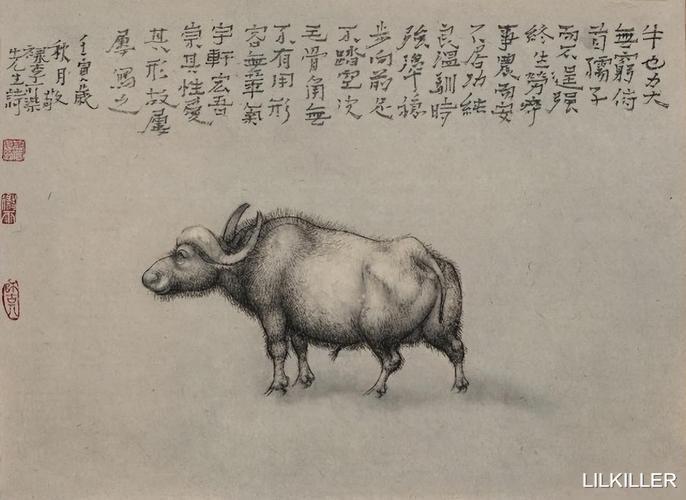 牛也力大
無窮俯
首孺子
而不逞强
終生勞瘁
事農而安
不居功純
良溫馴時
強犟穩
步向前足
不踏空皮
毛骨角無
不有用形
容無華氣
宇軒宏吾
崇其性愛
其形故屢
屢寫之
壬寅歲
秋月敬
録李可染
先生詩
LILKILLER